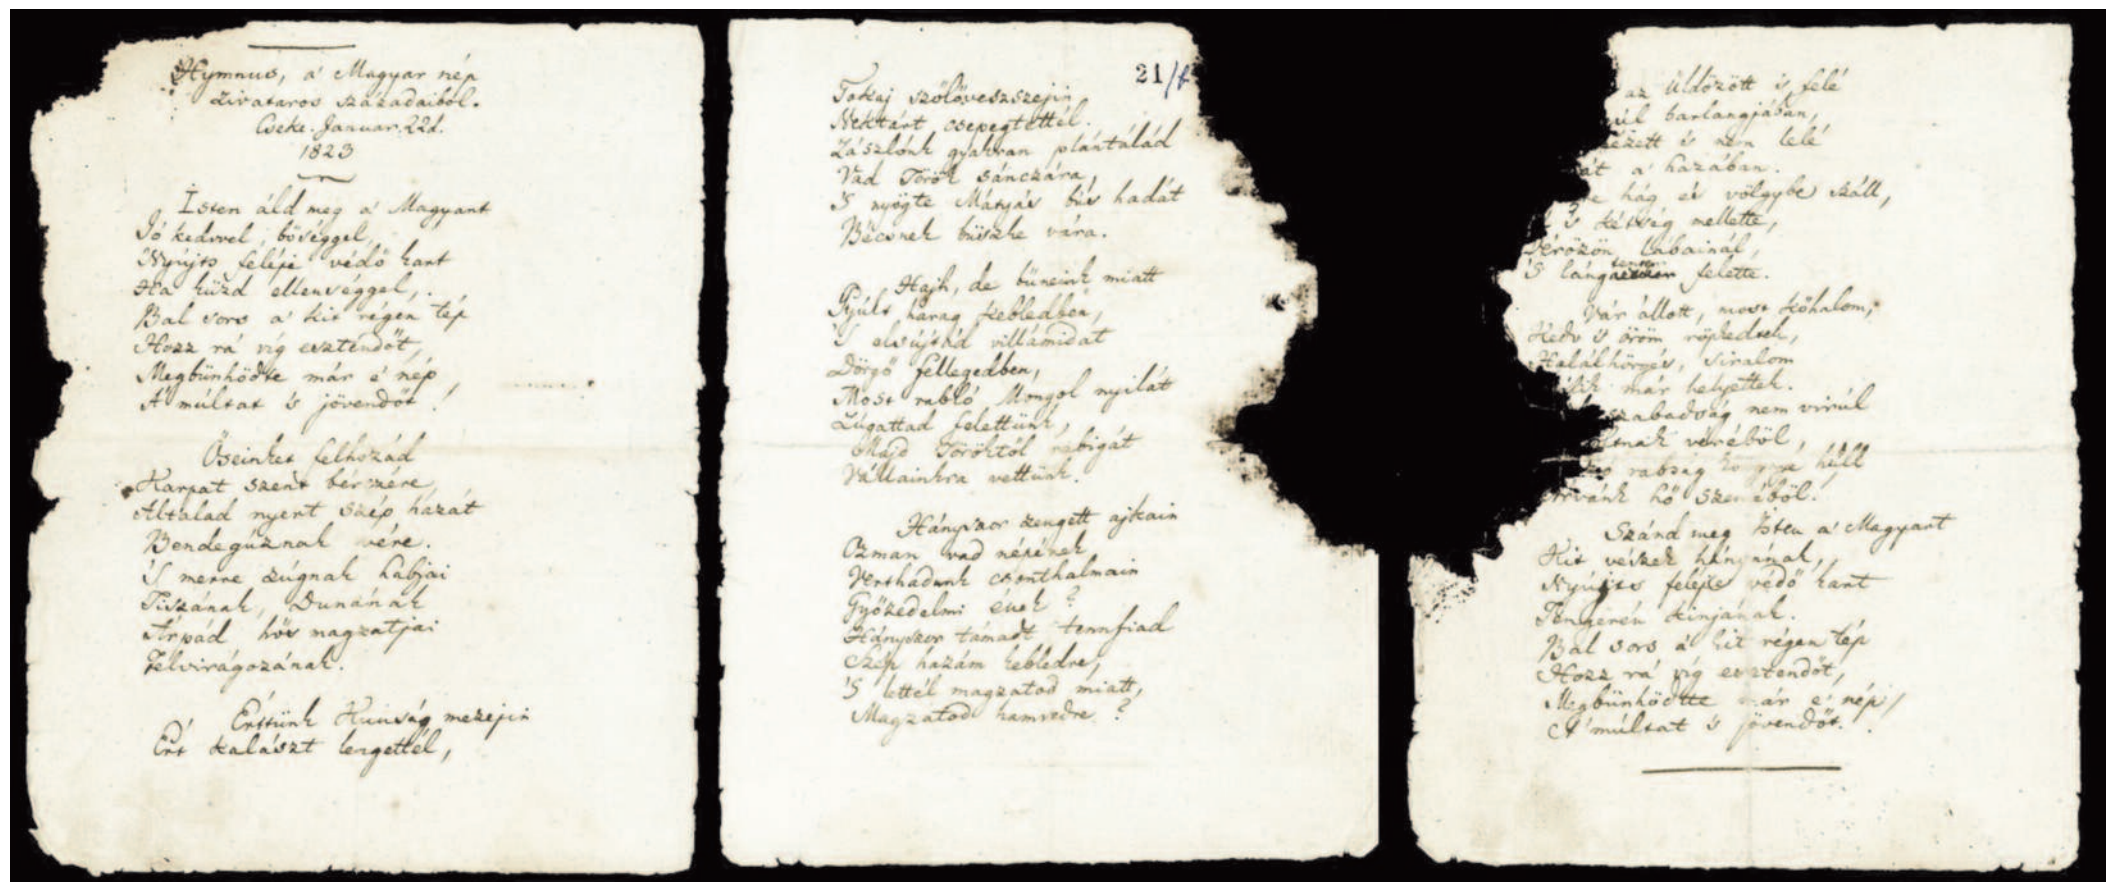 Hymnus, a' Magyar nép
zivataros századaiból.
Cseke. Januar. 22d.
1823
Isten áld meg a' Magyart
Jó kedvvel, bőséggel,
Nyújts feléje védő kart
Ha küzd ellenséggel,
Bal sors a' kit régen tép
Hozz rá víg esztendőt,
Megbűnhödte már e' nép
A' múltat 's jövendőt!
Őseinket felhozád
Kárpát szent bérczére,
Általad nyert szép hazát
Bendegúznak vére.
'S merre zúgnak habjai
Tiszának, Dunának
Árpád hős magzatjai
Felvirágozának.
Értünk Kunság mezejin
Ért kalászt lengettél,
21/f
Tokaj szőlővesszejin
Nektárt csepegtettél.
Zászlónk gyakran plántálád
Vad Török sánczára,
'S nyögte Mátyás bús hadát
Bécsnek büszke vára.
Hajh, de bűneink miatt
Gyúlt harag kebledben,
'S elsújtád villámidat
Dörgő fellegedben,
Most rabló Mongol nyilát
Zúgattad felettünk,
Majd Töröktől rabigát
Vállainkra vettünk.
Hányszor zengett ajkain
Ozman vad népének
Vert hadunk csonthalmain
Győzedelmi ének?
Hányszor támadt tennfiad
Szép hazám kebledre,
'S lettél magzatod miatt,
Magzatod hamvedre?
az üldözött 's felé
barlangjában,
és nem lelé
a' hazában.
hág és völgybe száll,
's kétség mellette,
Vérözön lábainál,
'S lángtenger felette.
Vár állott, most kőhalom,
Kedv 's öröm röpkedtek,
Halálhörgés, siralom
már helyettek.
szabadság nem virúl
véréből,
rabság könnye hull
Árvánk hő szeméből!
Szánd meg Isten a' Magyart
Kit vészek hányának,
Nyújts feléje védő kart
Tengerén kínjának.
Bal sors a' kit régen tép
Hozz rá víg esztendőt,
Megbűnhödte már e' nép
A' múltat 's jövendőt.